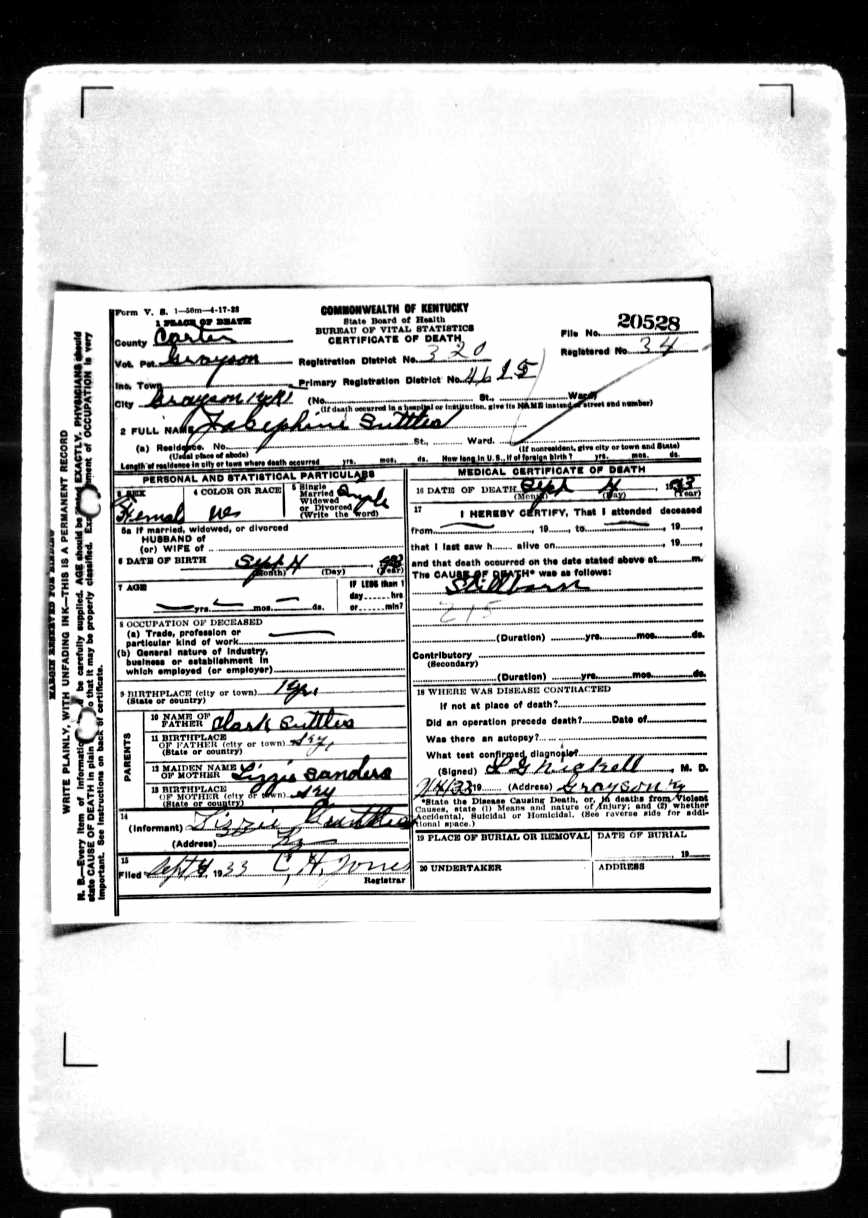 Form V. S. 1—50m—4-17-23
COMMONWEALTH OF KENTUCKY
State Board of Health
BUREAU OF VITAL STATISTICS
CERTIFICATE OF DEATH
File No. 20528
Registered No 34
1 PLACE OF DEATH
County Carter
Vot. Pct. Grayson
Registration District No. 320
Inc. Town
Primary Registration District No. 4615
City Grayson Ky (No. St., Ward)
(If death occurred in a hospital or institution, give its NAME instead of street and number)
2 FULL NAME Suttles
(a) Residence. No. St., Ward.
(Usual place of abode) (If nonresident, give city or town and State)
Length of residence in city or town where death occurred yrs. mos. ds. How long in U. S., if of foreign birth? yrs. mos. ds.
PERSONAL AND STATISTICAL PARTICULARS
3 SEX
Female
4 COLOR OR RACE
5 Single
Married
Widowed
or Divorced
(Write the word)
Single
5a If married, widowed, or divorced
HUSBAND of
(or) WIFE of
6 DATE OF BIRTH Sept 4
(Month) (Day) (Year)
7 AGE
yrs. mos. ds.
IF LESS than 1
day hrs
or min?
8 OCCUPATION OF DECEASED
(a) Trade, profession or
particular kind of work
(b) General nature of industry,
business or establishment in
which employed (or employer)
9 BIRTHPLACE (city or town) Ky.
(State or country)
PARENTS
10 NAME OF
FATHER Clark Suttles
11 BIRTHPLACE
OF FATHER (city or town) Ky,
(State or country)
12 MAIDEN NAME
OF MOTHER Lizzie Sanders
13 BIRTHPLACE
OF MOTHER (city or town) Ky
(State or country)
14
(Informant) Lizzie
(Address) Ky
15
Filed Sept 4 1933 C, H, Jones
Registrar
MEDICAL CERTIFICATE OF DEATH
16 DATE OF DEATH Sept 4 1933
(Month) (Day) (Year)
17
I HEREBY CERTIFY, That I attended deceased
from , 19 , to , 19
that I last saw h alive on , 19
and that death occurred on the date stated above at m.
The CAUSE OF DEATH* was as follows:
Stillborn
215
(Duration) yrs. mos. ds.
Contributory
(Secondary)
(Duration) yrs. mos. ds.
18 WHERE WAS DISEASE CONTRACTED
If not at place of death?
Did an operation precede death? Date of
Was there an autopsy?
What test confirmed diagnosis?
(Signed) L G Nickell, M. D.
9/4/33 19 (Address) Grayson Ky
*State the Disease Causing Death, or, in deaths from Violent
Causes, state (1) Means and nature of Injury; and (2) whether
Accidental, Suicidal or Homicidal. (See reverse side for addi-
tional space.)
19 PLACE OF BURIAL OR REMOVAL DATE OF BURIAL
19
20 UNDERTAKER ADDRESS
MARGIN RESERVED FOR BINDING
WRITE PLAINLY, WITH UNFADING INK—THIS IS A PERMANENT RECORD
N. B.—Every item of information be carefully supplied. AGE should be EXACTLY. PHYSICIANS should
state CAUSE OF DEATH in plain so that it may be properly classified. of OCCUPATION is very
important. See instructions on back of certificate.